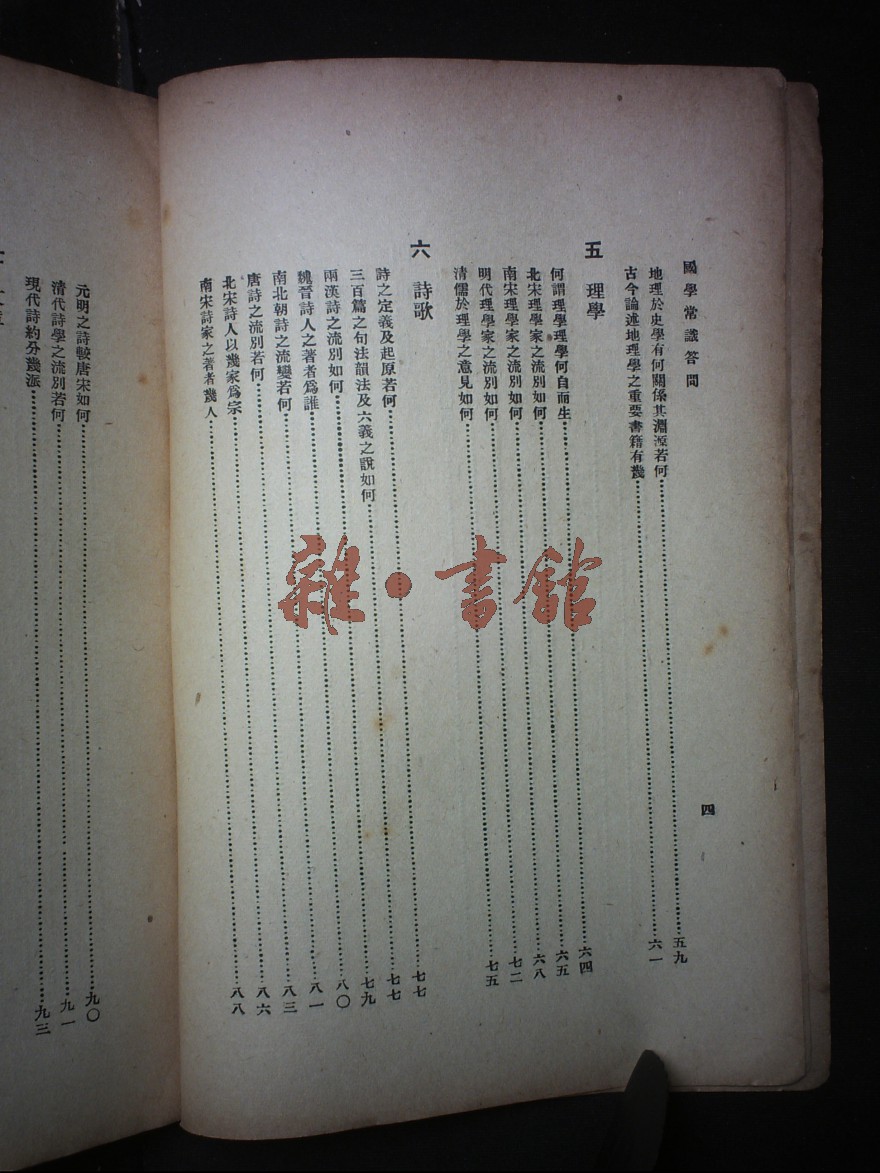 國學常識答問
四
地理於史學有何關係其淵源若何……五九
古今論述地理學之重要書籍有幾……六一
五 理學
何謂理學理學何自而生……六四
北宋理學家之流別如何……六五
南宋理學家之流別如何……六八
明代理學家之流別如何……七二
清儒於理學之意見如何……七五
六 詩歌
詩之定義及起原若何……七七
三百篇之句法韻法及六義之說如何……七七
兩漢詩之流別如何……七九
魏晉詩人之著者爲誰……八〇
南北朝詩之流變若何……八一
唐詩之流別若何……八三
北宋詩人以幾家爲宗……八六
南宋詩家之著者幾人……八八
元明之詩較唐宋如何……九〇
清代詩學之流別若何……九一
現代詩約分幾派……九三
雜·書館